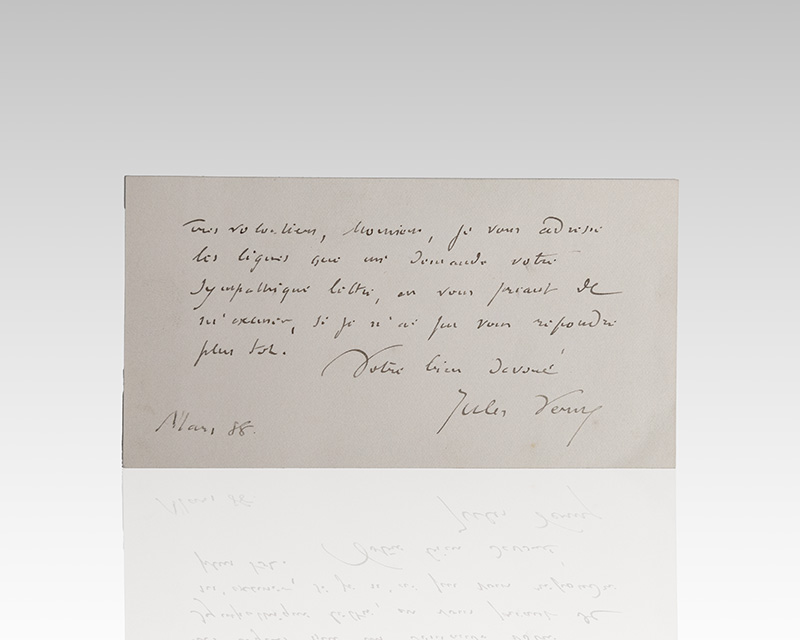 Très volontiers, Monsieur, je vous adresse
les lignes que me demande votre
sympathique lettre, en vous priant de
m'excuser, si je n'ai pu vous répondre
plus tôt.
Votre bien dévoué
Jules Verne
Mars 88.